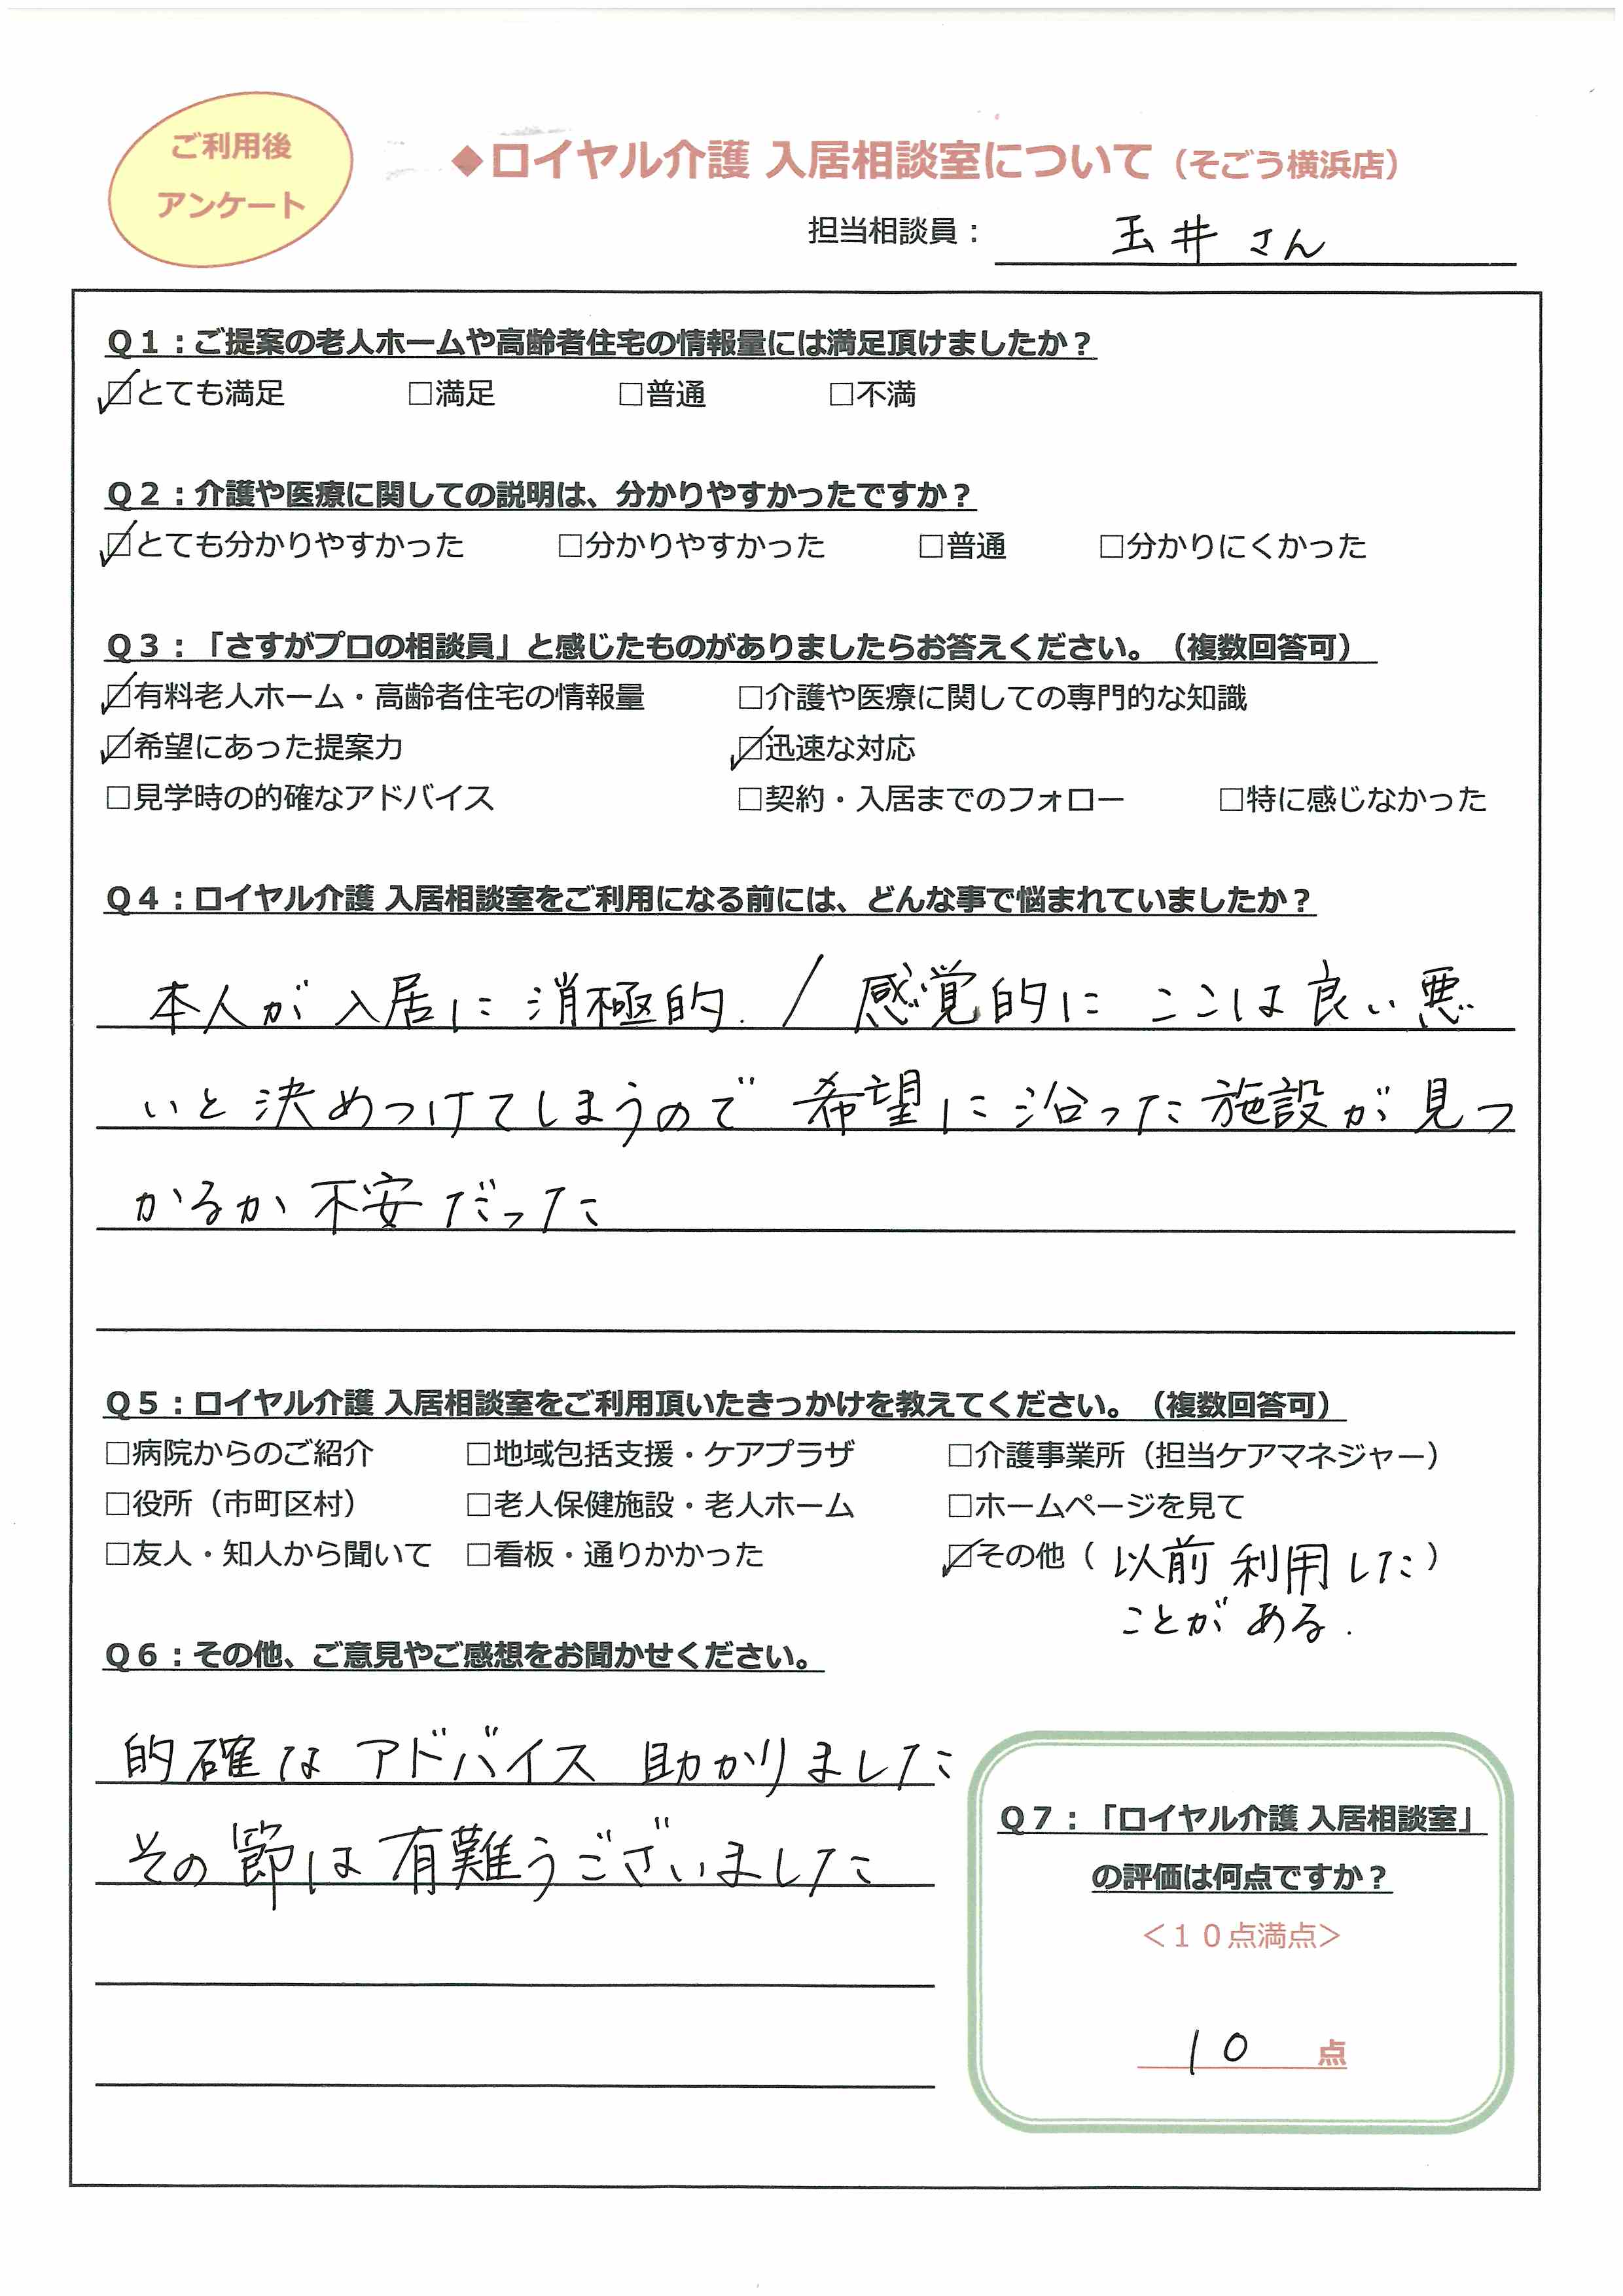 ご利用後
アンケート
◆ロイヤル介護 入居相談室について（そごう横浜店）
担当相談員： 玉井さん
Ｑ１：ご提案の老人ホームや高齢者住宅の情報量には満足頂けましたか？
☑とても満足 □満足 □普通 □不満
Ｑ２：介護や医療に関しての説明は、分かりやすかったですか？
☑とても分かりやすかった □分かりやすかった □普通 □分かりにくかった
Ｑ３：「さすがプロの相談員」と感じたものがありましたらお答えください。（複数回答可）
☑有料老人ホーム・高齢者住宅の情報量 □介護や医療に関しての専門的な知識
☑希望にあった提案力 ☑迅速な対応
□見学時の的確なアドバイス □契約・入居までのフォロー □特に感じなかった
Ｑ４：ロイヤル介護 入居相談室をご利用になる前には、どんな事で悩まれていましたか？
本人が入居に消極的. / 感覚的にここは良い悪
いと決めつけてしまうので希望に沿った施設が見つ
かるか不安だった
Ｑ５：ロイヤル介護 入居相談室をご利用頂いたきっかけを教えてください。（複数回答可）
□病院からのご紹介 □地域包括支援・ケアプラザ □介護事業所（担当ケアマネジャー）
□役所（市町区村） □老人保健施設・老人ホーム □ホームページを見て
□友人・知人から聞いて □看板・通りかかった ☑その他（以前利用した）
ことがある.
Ｑ６：その他、ご意見やご感想をお聞かせください。
的確なアドバイス 助かりました
その節は有難うございました
Ｑ７：「ロイヤル介護 入居相談室」
の評価は何点ですか？
＜１０点満点＞
10 点